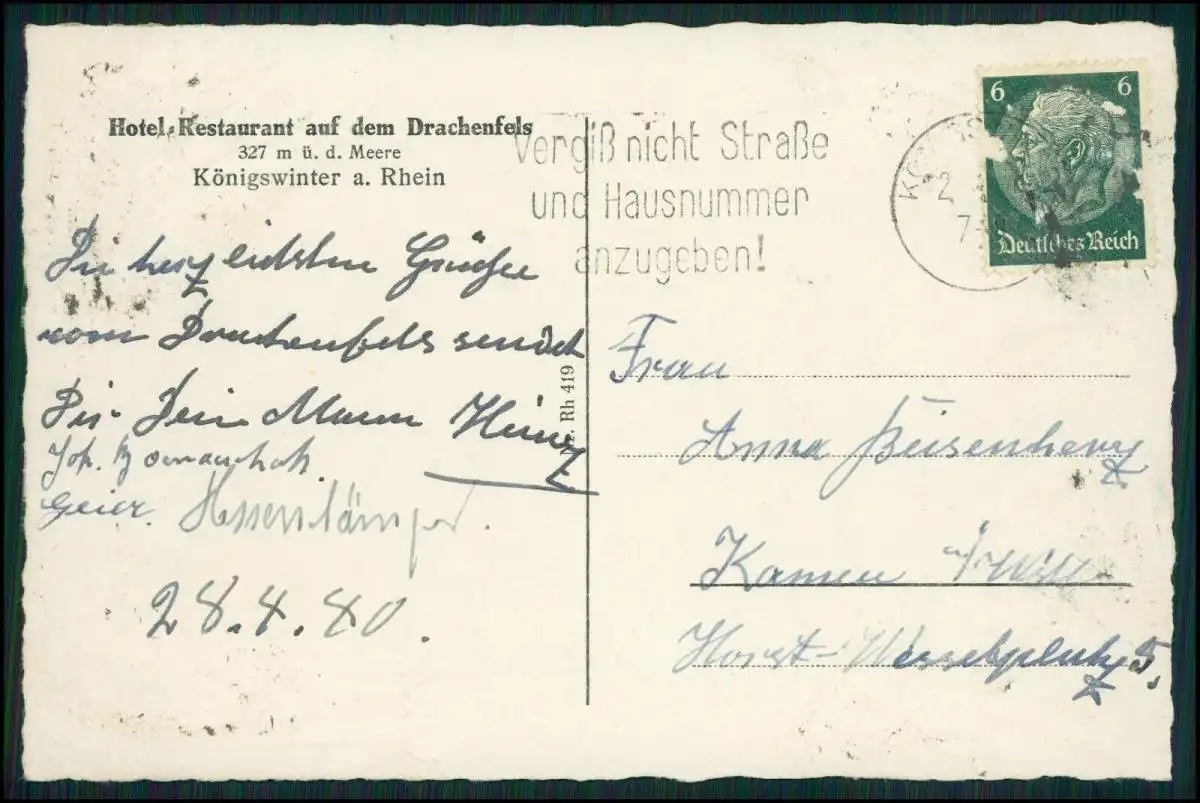 Hotel-Restaurant auf dem Drachenfels
327 m ü. d. Meere
Königswinter a. Rhein
Vergiß nicht Straße
und Hausnummer
anzugeben!
6 6
Deutsches Reich
2
7-
Die herzlichsten Grüße
vom Drachenfels sendet
Dir Dein Mann Heinz
Joh.
Geier.
28.4.40.
Rh 419
Frau
Anna
Kamen i/Westf.
Horst-Wesselplatz 5.